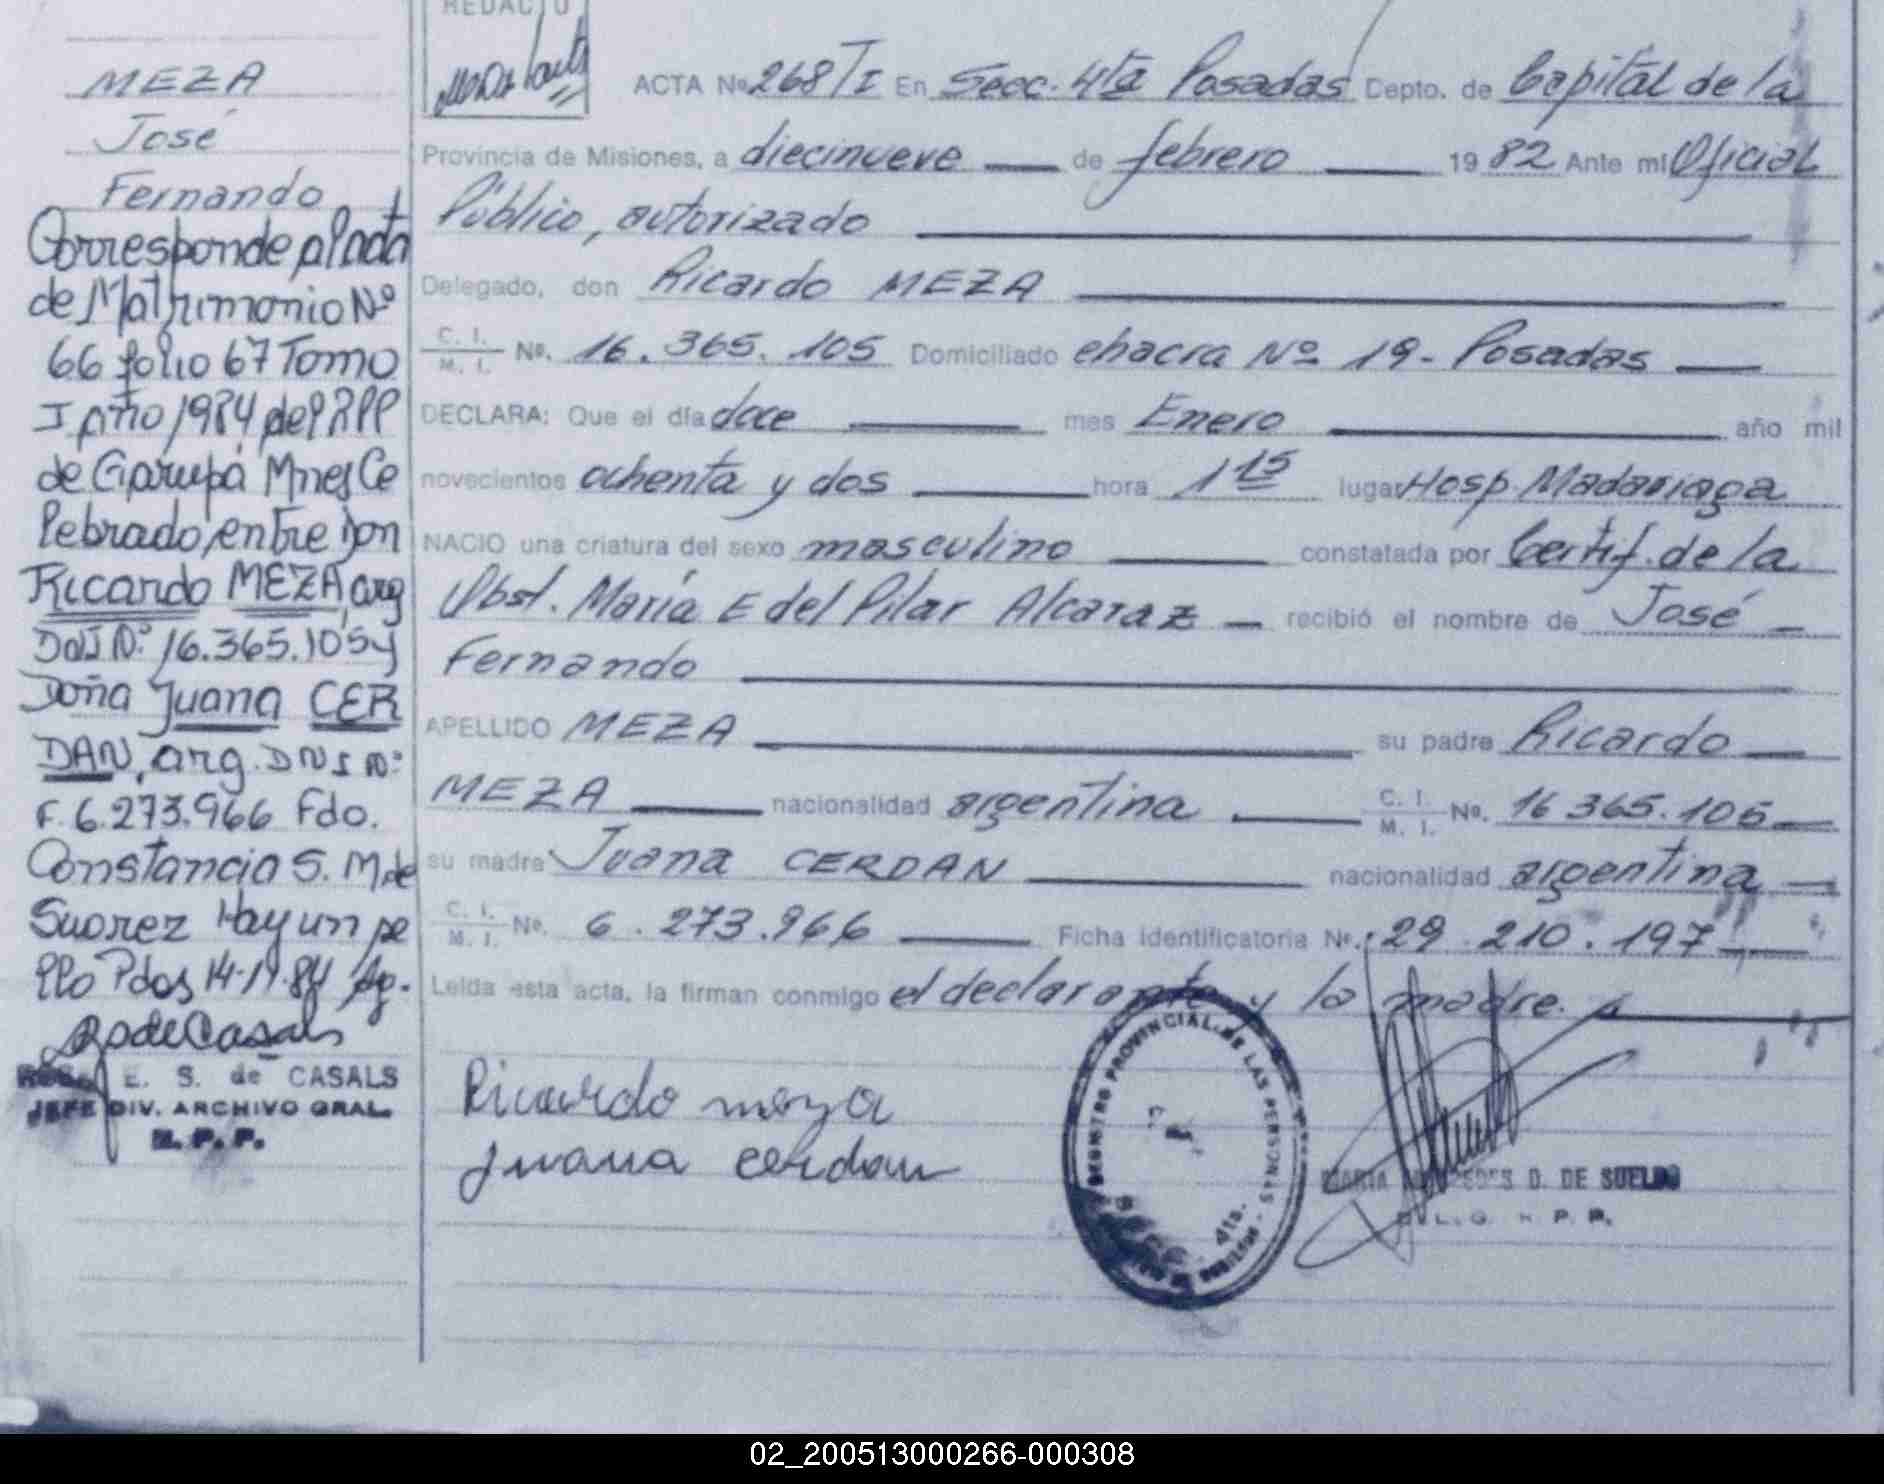 MEZA
José
Fernando
Corresponde al Acta
de Matrimonio Nº
66 folio 67 Tomo
I Año 1984 del RPP
de Garupá Mnes Ce
lebrado entre Don
Ricardo MEZA, arg
DNI Nº 16.365.105 y
Doña Juana CER
DAN, arg. DNI Nº
F. 6.273.966 Fdo.
Constancia S. M. de
Suarez Hay un se
llo Pdas 14-11-84
E. S. de CASALS
JEFE DIV. ARCHIVO GRAL.
R. P. P.
REDACTO
ACTA Nº 268/I En Secc. 4ta Posadas Depto. de Capital de la
Provincia de Misiones, a diecinueve de febrero 1982 Ante mi Oficial
Público, autorizado
Delegado, don Ricardo MEZA
C. I. / M. I. Nº. 16.365.105 Domiciliado chacra Nº 19- Posadas
DECLARA: Que el día doce mes Enero año mil
novecientos ochenta y dos hora 1 15 lugar Hosp. Madariaga
NACIO una criatura del sexo masculino constatada por Certif. de la
Obst. María E del Pilar Alcaraz recibió el nombre de José
Fernando
APELLIDO MEZA su padre Ricardo
MEZA nacionalidad argentina C. I. / M. I. Nº. 16 365.105
su madre Juana CERDAN nacionalidad argentina
C. I. / M. I. Nº. 6.273.966 Ficha Identificatoria Nº. 29.210.197
Leída esta acta, la firman conmigo el declarante y la madre.
Ricardo meza
Juana cerdan
REGISTRO PROVINCIAL DE LAS PERSONAS - MISIONES
SECC. 4ta.
MARIA MERCEDES D. DE SUELDO
R. P. P.
02_200513000266-000308